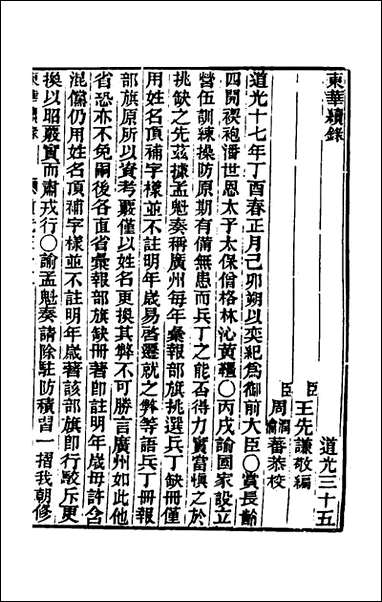 東華續錄　道光三十五
臣王先謙敬編
臣周潤蕃恭校
道光十七年丁酉春正月己卯朔以奕紀為御前大臣〇賞長齡
四開禊袍潘世恩太子太保僧格林沁黃韁〇丙戌諭國家設立
營伍訓練操防原期有備無患而兵丁之能否得力實當慎之於
挑缺之先茲據孟魁奏稱廣州每年彙報部旗挑選兵丁缺冊僅
用姓名頂補字樣並不註明年歲易啓遷就之弊等語兵丁冊報
部旗原所以資考覈僅以姓名更換其弊不可勝言廣州如此他
省恐亦不免嗣後各直省彙報部旗缺冊著卽註明年歲毋許含
混儻仍用姓名頂補字樣並不註明年歲著該部旗卽行駁斥更
換以昭覈實而肅戎行〇諭孟魁奏請除駐防積習一摺我朝修
東華續錄